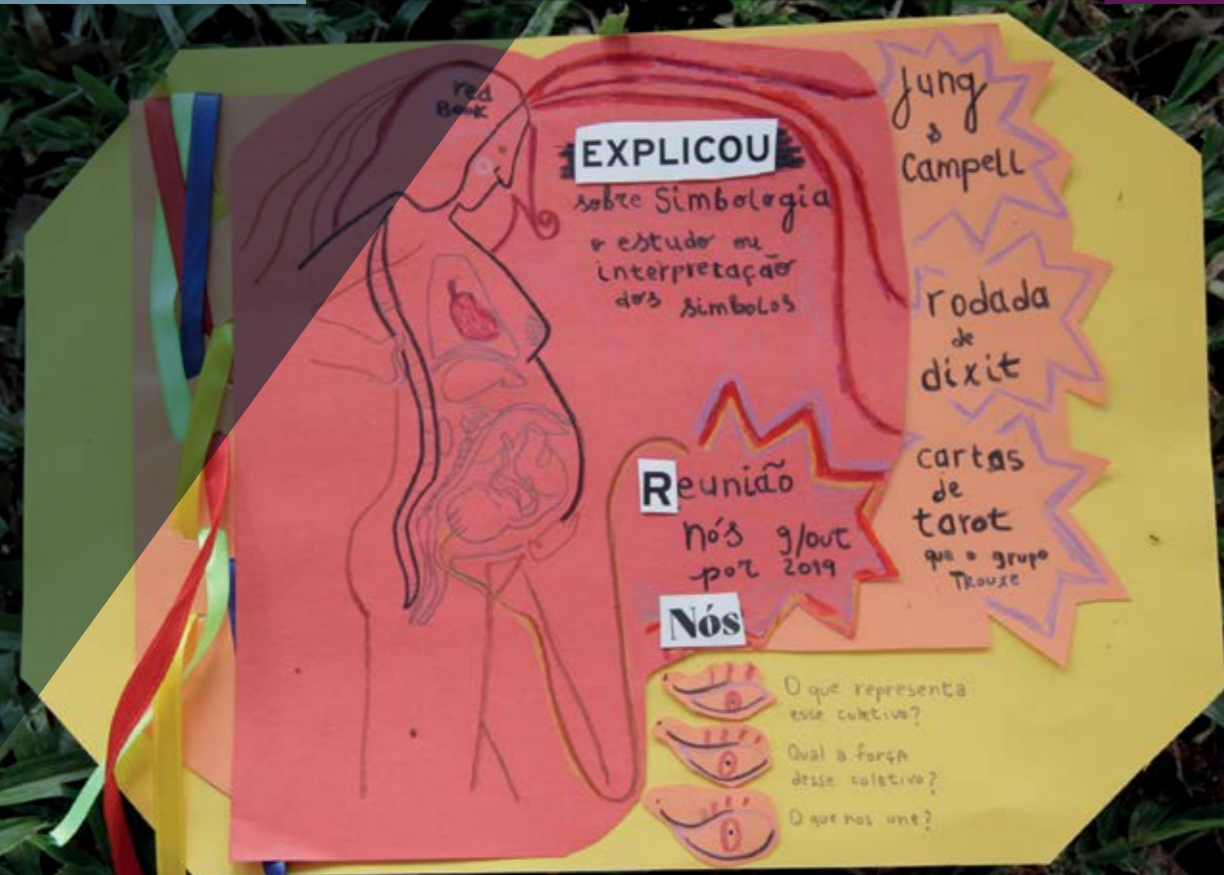 red
BOOK
EXPLICOU
sobre Simbologia
o estudo ou
interpretação
dos simbolos
Jung
&
Campell
rodada
de
dixit
cartas
de
tarot
que o grupo
TROUXE
Reunião
nós 9/out
por 2019
Nós
O que representa
esse coletivo?
Qual a força
desse coletivo?
O que nos une?